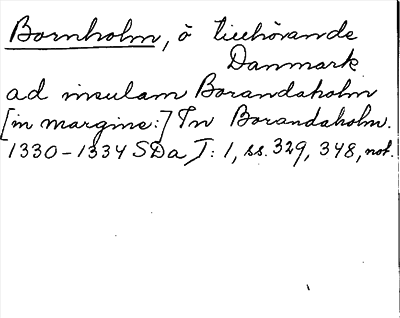 Bornholm, ö tillhörande
Danmark
ad insulam Borandaholm
[in margine:] In Borandaholm.
1330-1334 SDa I: 1, ss. 329, 348, not.